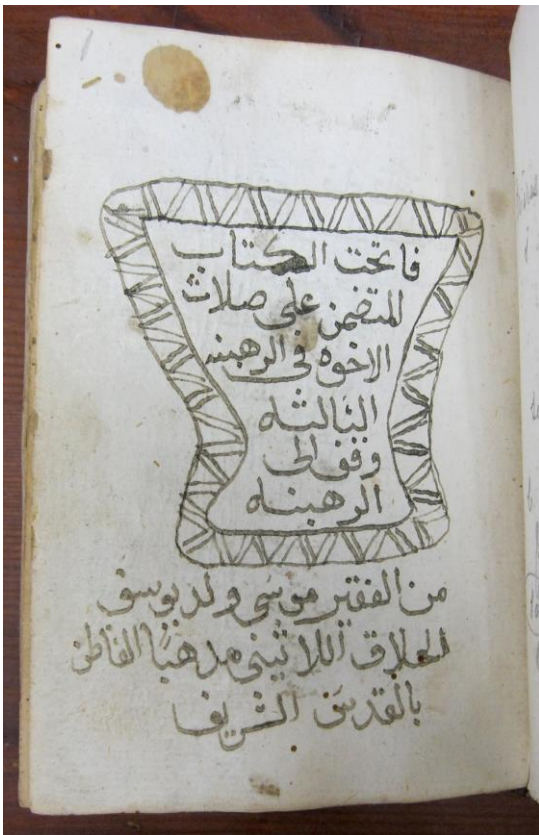 فاتحت الكتاب
المتضمن على صلات
الاخوه فى الرهبنه
الثالثه
وقف الى
الرهبنه
من الفقير موسى ولد يوسف
الحلاق اللاتينى مذهبًا القاطن
بالقدس الشريف